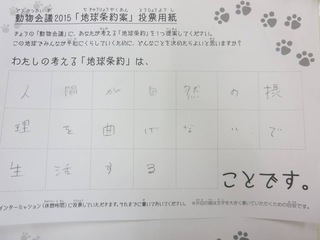 動物会議2015「地球条約案」投票用紙
きょうの「動物会議」に、あなたが考える「地球条約」を1つ提案してください。
この地球でみんなが平和にくらしていくために、どんなことを決めたらよいと思いますか？
わたしの考える「地球条約」は、
人間が自然の摂
理を曲げないで
生活する
ことです。
インターミッション（休憩時間）に投票していただきます。それまでに書いておいてください。